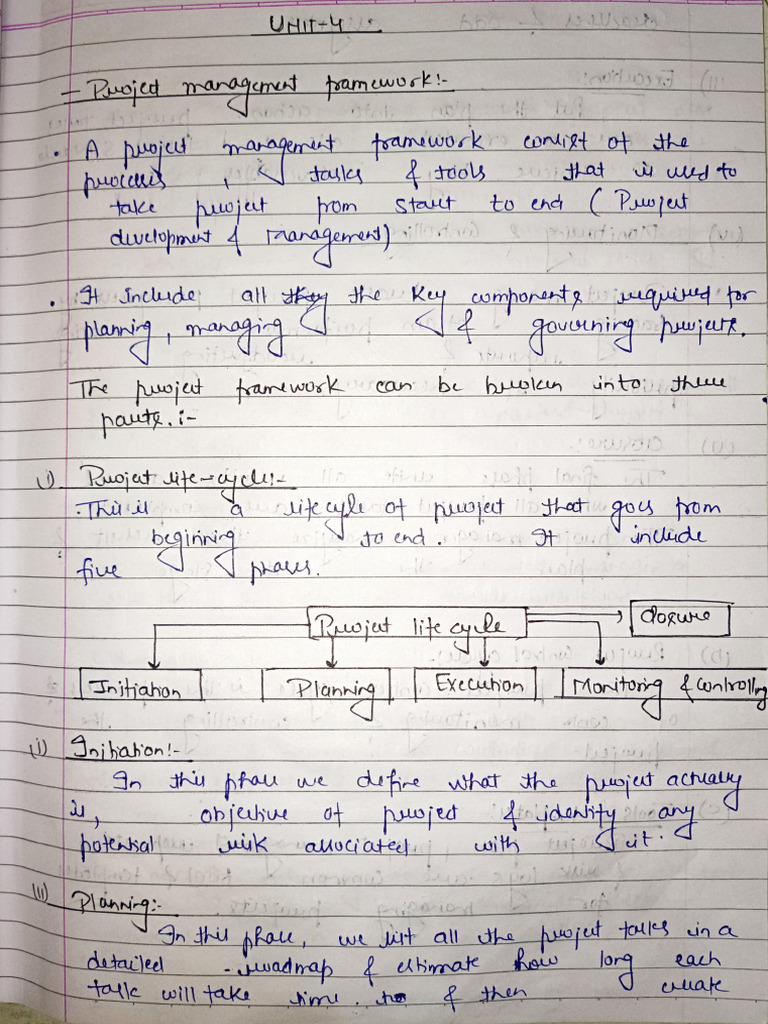 UNIT-4 :
- Project management framework:-
• A project management framework consist of the
process , tasks & tools that is used to
take project from start to end ( Project
development & Management)
• It include all the key components required for
planning, managing & governing projects.
The project framework can be broken into three
parts. :-
i) Project life-cycle:-
This is a lifecycle of project that goes from
beginning to end. It include
five phases.
Project life cycle
Closure
Initiation Planning Execution Monitoring & Controlling
(i) Initiation:-
In this phase we define what the project actually
is, objective of project & identify any
potential risk associated with it.
(ii) Planning:-
In this phase, we list all the project tasks in a
detailed roadmap & estimate how long each
task will take time. & then create